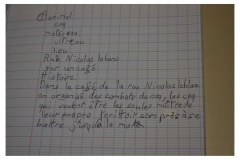 coq
vitreau
Lieu
Rue Nicolas leblanc
sur un café
Histoire
Dans le café de la rue Nicolas leblanc
on organise des combats de coq, les coq
qui veulent être les seules maître de
leur propre territoire sont près à se
battre jusqu'à la mort.